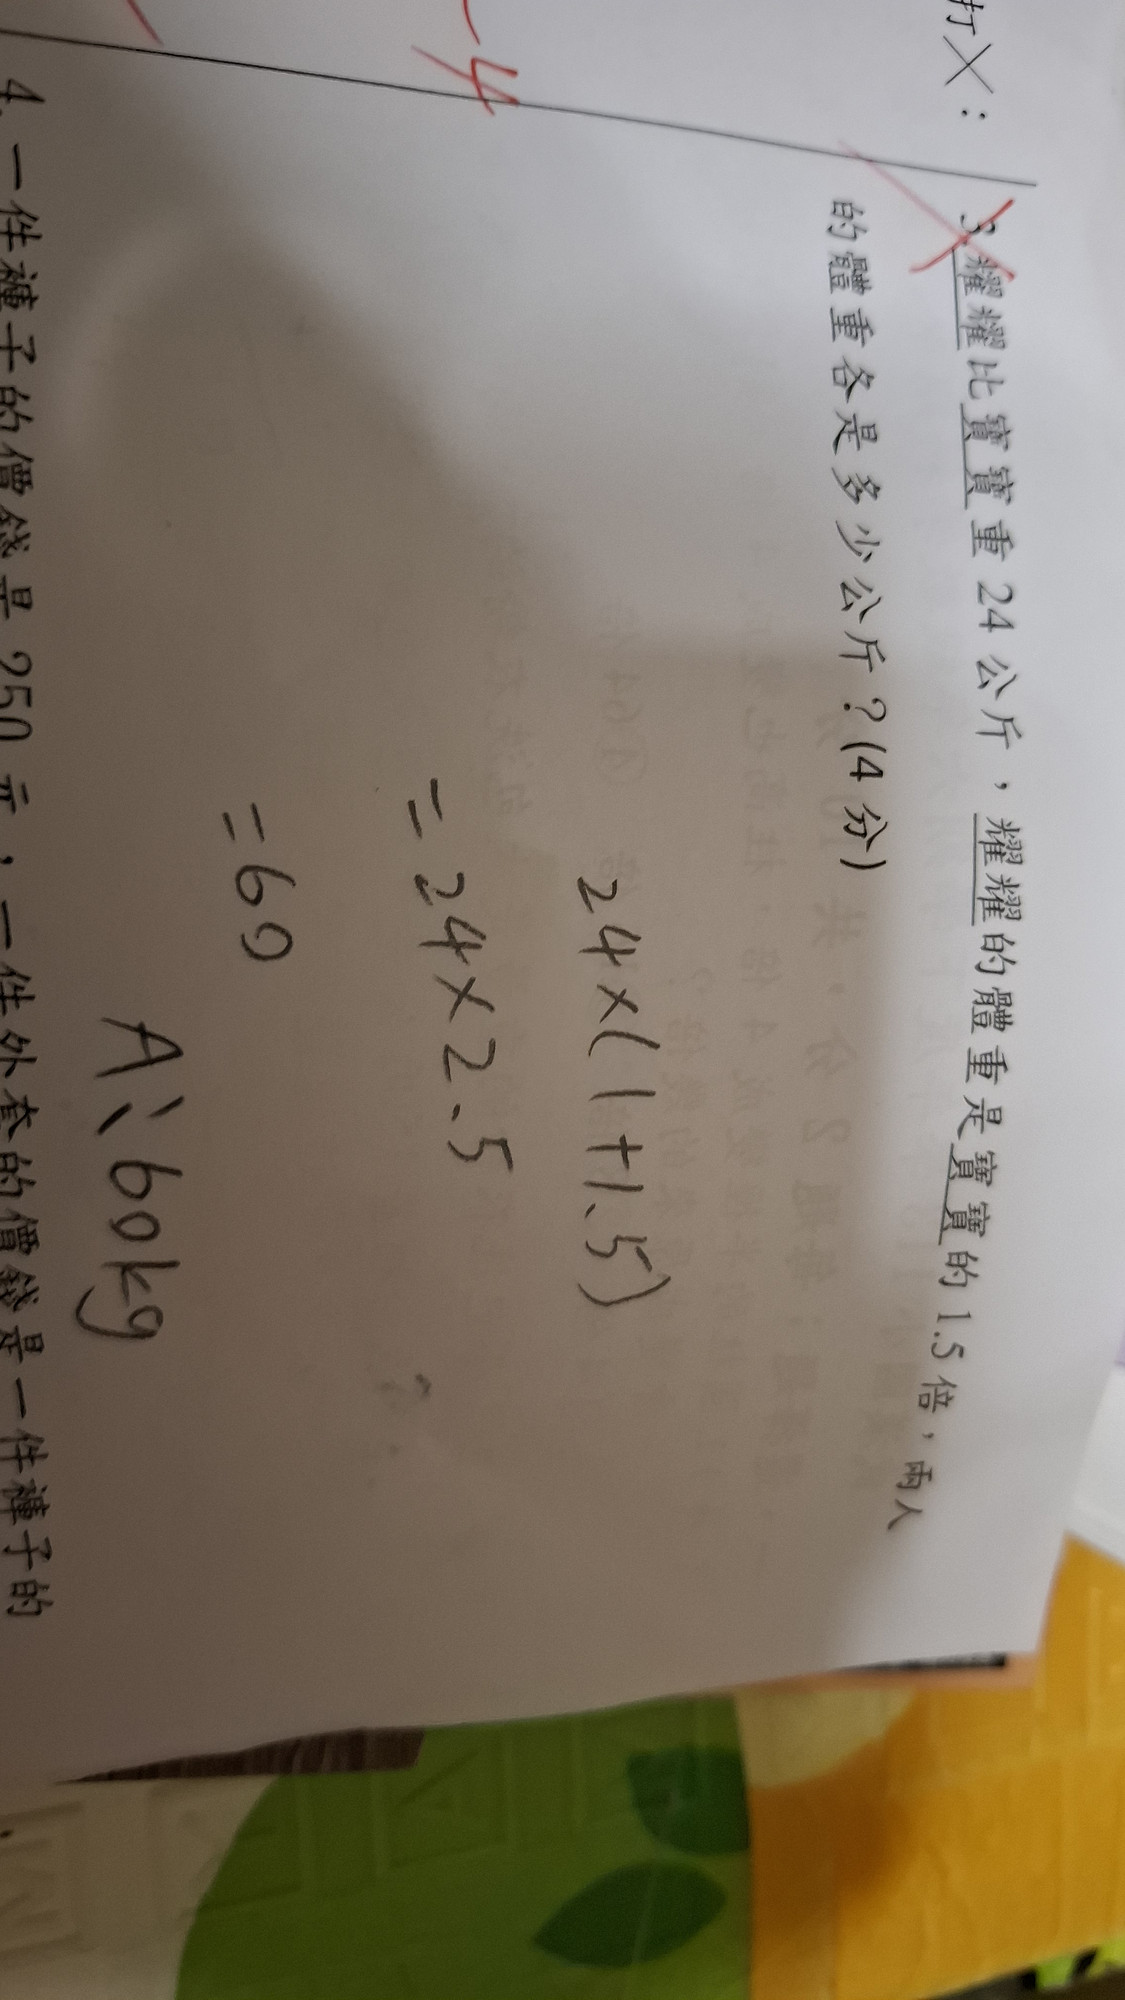 打╳：
-4
3.耀耀比寶寶重 24 公斤，耀耀的體重是寶寶的 1.5 倍，兩人
的體重各是多少公斤？(4 分)
24×(1+1.5)
=24×2.5
=60
A:60kg
4.一件褲子的價錢是 250 元，一件外套的價錢是一件褲子的